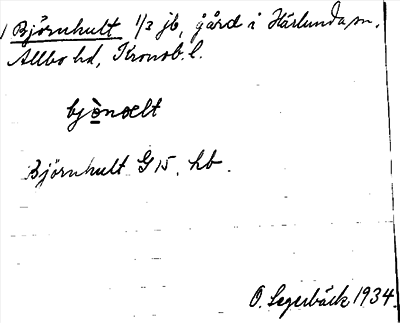 Björnhult 1/3 jb, gård i Härlunda sn,
Allbo hd, Kronob. l.
bjö̀nɷlt
Björnhult G 15. hb.
O. Segerbäck 1934.